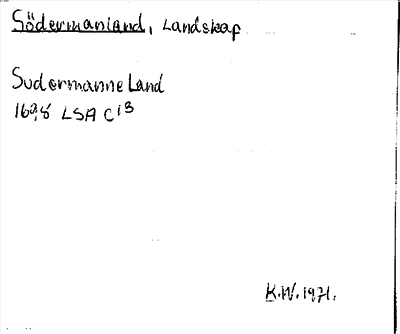 Södermanland, Landskap
Sudermanne Land
1698 LSA C 13
K.W. 1971.